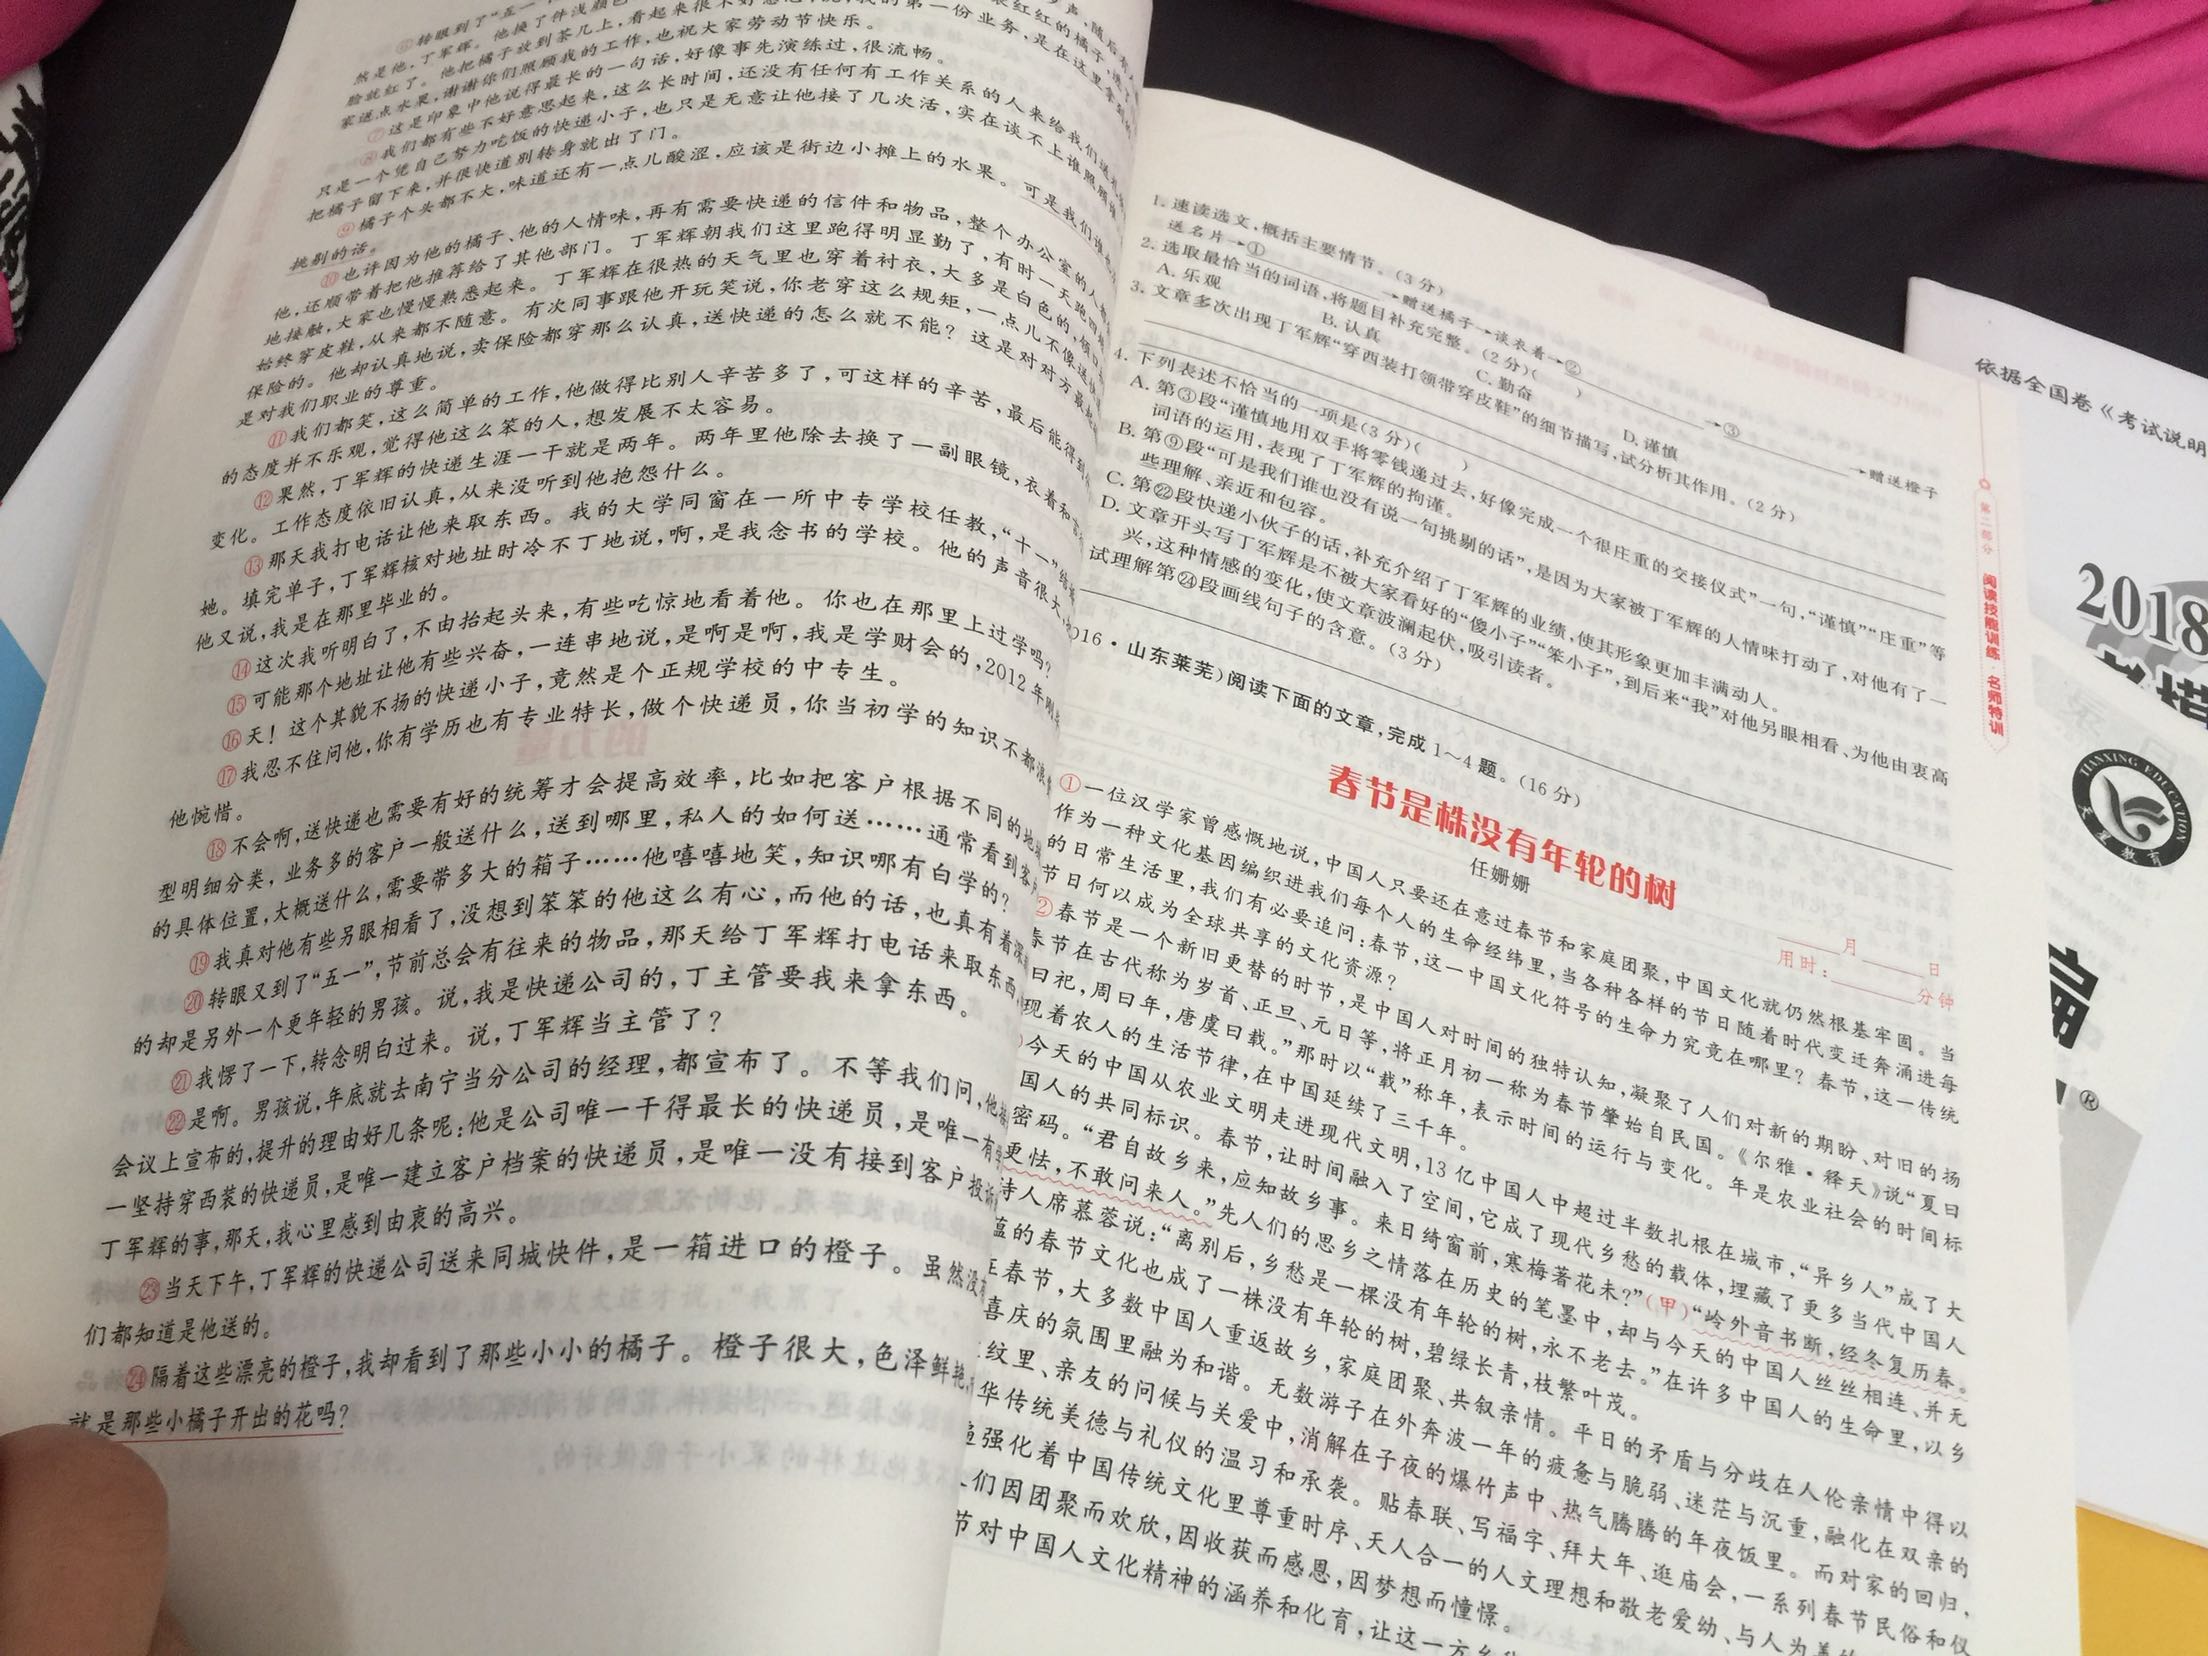 ⑥转眼到了“五一”
然是他,丁军辉。他换了件浅颜色
脸就红了。他把橘子放到茶几上,看起来很不好意思
家送点水果,谢谢你们照顾我的工作,也祝大家劳动节快乐。
⑦这是印象中他说得最长的一句话,好像事先演练过,很流畅。
⑧我们都有些不好意思起来,这么长时间,还没有任何有工作关系的人来给我们送礼
只是一个凭自己努力吃饭的快递小子,也只是无意让他接了几次活,实在谈不上谁照顾谁
把橘子留下来,并很快道别转身就出了门。
⑨橘子个头都不大,味道还有一点儿酸涩,应该是街边小摊上的水果。可是我们谁
挑剔的话。
⑩也许因为他的橘子、他的人情味,再有需要快递的信件和物品,整个办公室的人
他,还顺带着把他推荐给了其他部门。丁军辉朝我们这里跑得明显勤了,有时一天跑
地接触,大家也慢慢熟悉起来。丁军辉在很热的天气里也穿着衬衣,大多是白色的,
始终穿皮鞋,从来都不随意。有次同事跟他开玩笑说,你老穿这么规矩,一点儿不像送快
保险的。他却认真地说,卖保险都穿那么认真,送快递的怎么就不能?这是对对方最起
是对我们职业的尊重。
⑪我们都笑,这么简单的工作,他做得比别人辛苦多了,可这样的辛苦,最后能得到
的态度并不乐观,觉得他这么笨的人,想发展不太容易。
⑫果然,丁军辉的快递生涯一干就是两年。两年里他除去换了一副眼镜,衣着和言
变化。工作态度依旧认真,从来没听到他抱怨什么。
⑬那天我打电话让他来取东西。我的大学同窗在一所中专学校任教,“十一”结
她。填完单子,丁军辉核对地址时冷不丁地说,啊,是我念书的学校。他的声音很大,
他又说,我是在那里毕业的。
⑭这次我听明白了,不由抬起头来,有些吃惊地看着他。你也在那里上过学吗?
⑮可能那个地址让他有些兴奋,一连串地说,是啊是啊,我是学财会的,2012年刚
⑯天!这个其貌不扬的快递小子,竟然是个正规学校的中专生。
⑰我忍不住问他,你有学历也有专业特长,做个快递员,你当初学的知识不都浪
他惋惜。
⑱不会啊,送快递也需要有好的统筹才会提高效率,比如把客户根据不同的地
型明细分类,业务多的客户一般送什么,送到哪里,私人的如何送……通常看到客户
的具体位置,大概送什么,需要带多大的箱子……他嘻嘻地笑,知识哪有白学的?
⑲我真对他有些另眼相看了,没想到笨笨的他这么有心,而他的话,也真有着深
⑳转眼又到了“五一”,节前总会有往来的物品,那天给丁军辉打电话来取东西,
的却是另外一个更年轻的男孩。说,我是快递公司的,丁主管要我来拿东西。
㉑我愣了一下,转念明白过来。说,丁军辉当主管了?
㉒是啊。男孩说,年底就去南宁当分公司的经理,都宣布了。不等我们问,他
会议上宣布的,提升的理由好几条呢:他是公司唯一干得最长的快递员,是唯一有
一坚持穿西装的快递员,是唯一建立客户档案的快递员,是唯一没有接到客户投诉
丁军辉的事,那天,我心里感到由衷的高兴。
㉓当天下午,丁军辉的快递公司送来同城快件,是一箱进口的橙子。虽然没
们都知道是他送的。
㉔隔着这些漂亮的橙子,我却看到了那些小小的橘子。橙子很大,色泽鲜艳,
就是那些小橘子开出的花吗?
1. 速读选文,概括主要情节。(3分)
送名片→①→赠送橘子→谈衣着→②→③→赠送橙子
2. 选取最恰当的词语,将题目补充完整。(2分)( )
A. 乐观 B. 认真 C. 勤奋 D. 谨慎
3. 文章多次出现丁军辉“穿西装打领带穿皮鞋”的细节描写,试分析其作用。(2分)
4. 下列表述不恰当的一项是(3分)( )
A. 第③段“谨慎地用双手将零钱递过去,好像完成一个很庄重的交接仪式”一句,“谨慎”“庄重”等
词语的运用,表现了丁军辉的拘谨。
B. 第⑨段“可是我们谁也没有说一句挑剔的话”,是因为大家被丁军辉的人情味打动了,对他有了一
些理解、亲近和包容。
C. 第㉒段快递小伙子的话,补充介绍了丁军辉的业绩,使其形象更加丰满动人。
D. 文章开头写丁军辉是不被大家看好的“傻小子”“笨小子”,到后来“我”对他另眼相看、为他由衷高
兴,这种情感的变化,使文章波澜起伏,吸引读者。
试理解第㉔段画线句子的含意。(3分)
016·山东莱芜)阅读下面的文章,完成1~4题。(16分)
月 日
用时: 分钟
春节是株没有年轮的树
任姗姗
①一位汉学家曾感慨地说,中国人只要还在意过春节和家庭团聚,中国文化就仍然根基牢固。当
作为一种文化基因编织进我们每个人的生命经纬里,当各种各样的节日随着时代变迁奔涌进每
的日常生活里,我们有必要追问:春节,这一中国文化符号的生命力究竟在哪里?春节,这一传统
节日何以成为全球共享的文化资源?
②春节是一个新旧更替的时节,是中国人对时间的独特认知,凝聚了人们对新的期盼、对旧的扬
春节在古代称为岁首、正旦、元日等,将正月初一称为春节肇始自民国。《尔雅·释天》说“夏曰
曰祀,周曰年,唐虞曰载。”那时以“载”称年,表示时间的运行与变化。年是农业社会的时间标
现着农人的生活节律,在中国延续了三千年。
今天的中国从农业文明走进现代文明,13亿中国人中超过半数扎根在城市,“异乡人”成了大
国人的共同标识。春节,让时间融入了空间,它成了现代乡愁的载体,埋藏了更多当代中国人
密码。“君自故乡来,应知故乡事。来日绮窗前,寒梅著花未?”(甲)“岭外音书断,经冬复历春。
更怯,不敢问来人。”先人们的思乡之情落在历史的笔墨中,却与今天的中国人丝丝相连、并无
诗人席慕蓉说:“离别后,乡愁是一棵没有年轮的树,永不老去。”在许多中国人的生命里,以乡
蕴的春节文化也成了一株没有年轮的树,碧绿长青,枝繁叶茂。
春节,大多数中国人重返故乡,家庭团聚、共叙亲情。平日的矛盾与分歧在人伦亲情中得以
喜庆的氛围里融为和谐。无数游子在外奔波一年的疲惫与脆弱、迷茫与沉重,融化在双亲的
纹里、亲友的问候与关爱中,消解在子夜的爆竹声中、热气腾腾的年夜饭里。而对家的回归,
华传统美德与礼仪的温习和承袭。贴春联、写福字、拜大年、逛庙会,一系列春节民俗和仪
强化着中国传统文化里尊重时序、天人合一的人文理想和敬老爱幼、与人为善
们因团聚而欢欣,因收获而感恩,因梦想而憧憬。
节对中国人文化精神的涵养和化育,让这一方
第二部分 阅读技能训练 名师特训
依据全国卷《考试说明
2018
TIANXING EDUCATION
天星教育
®